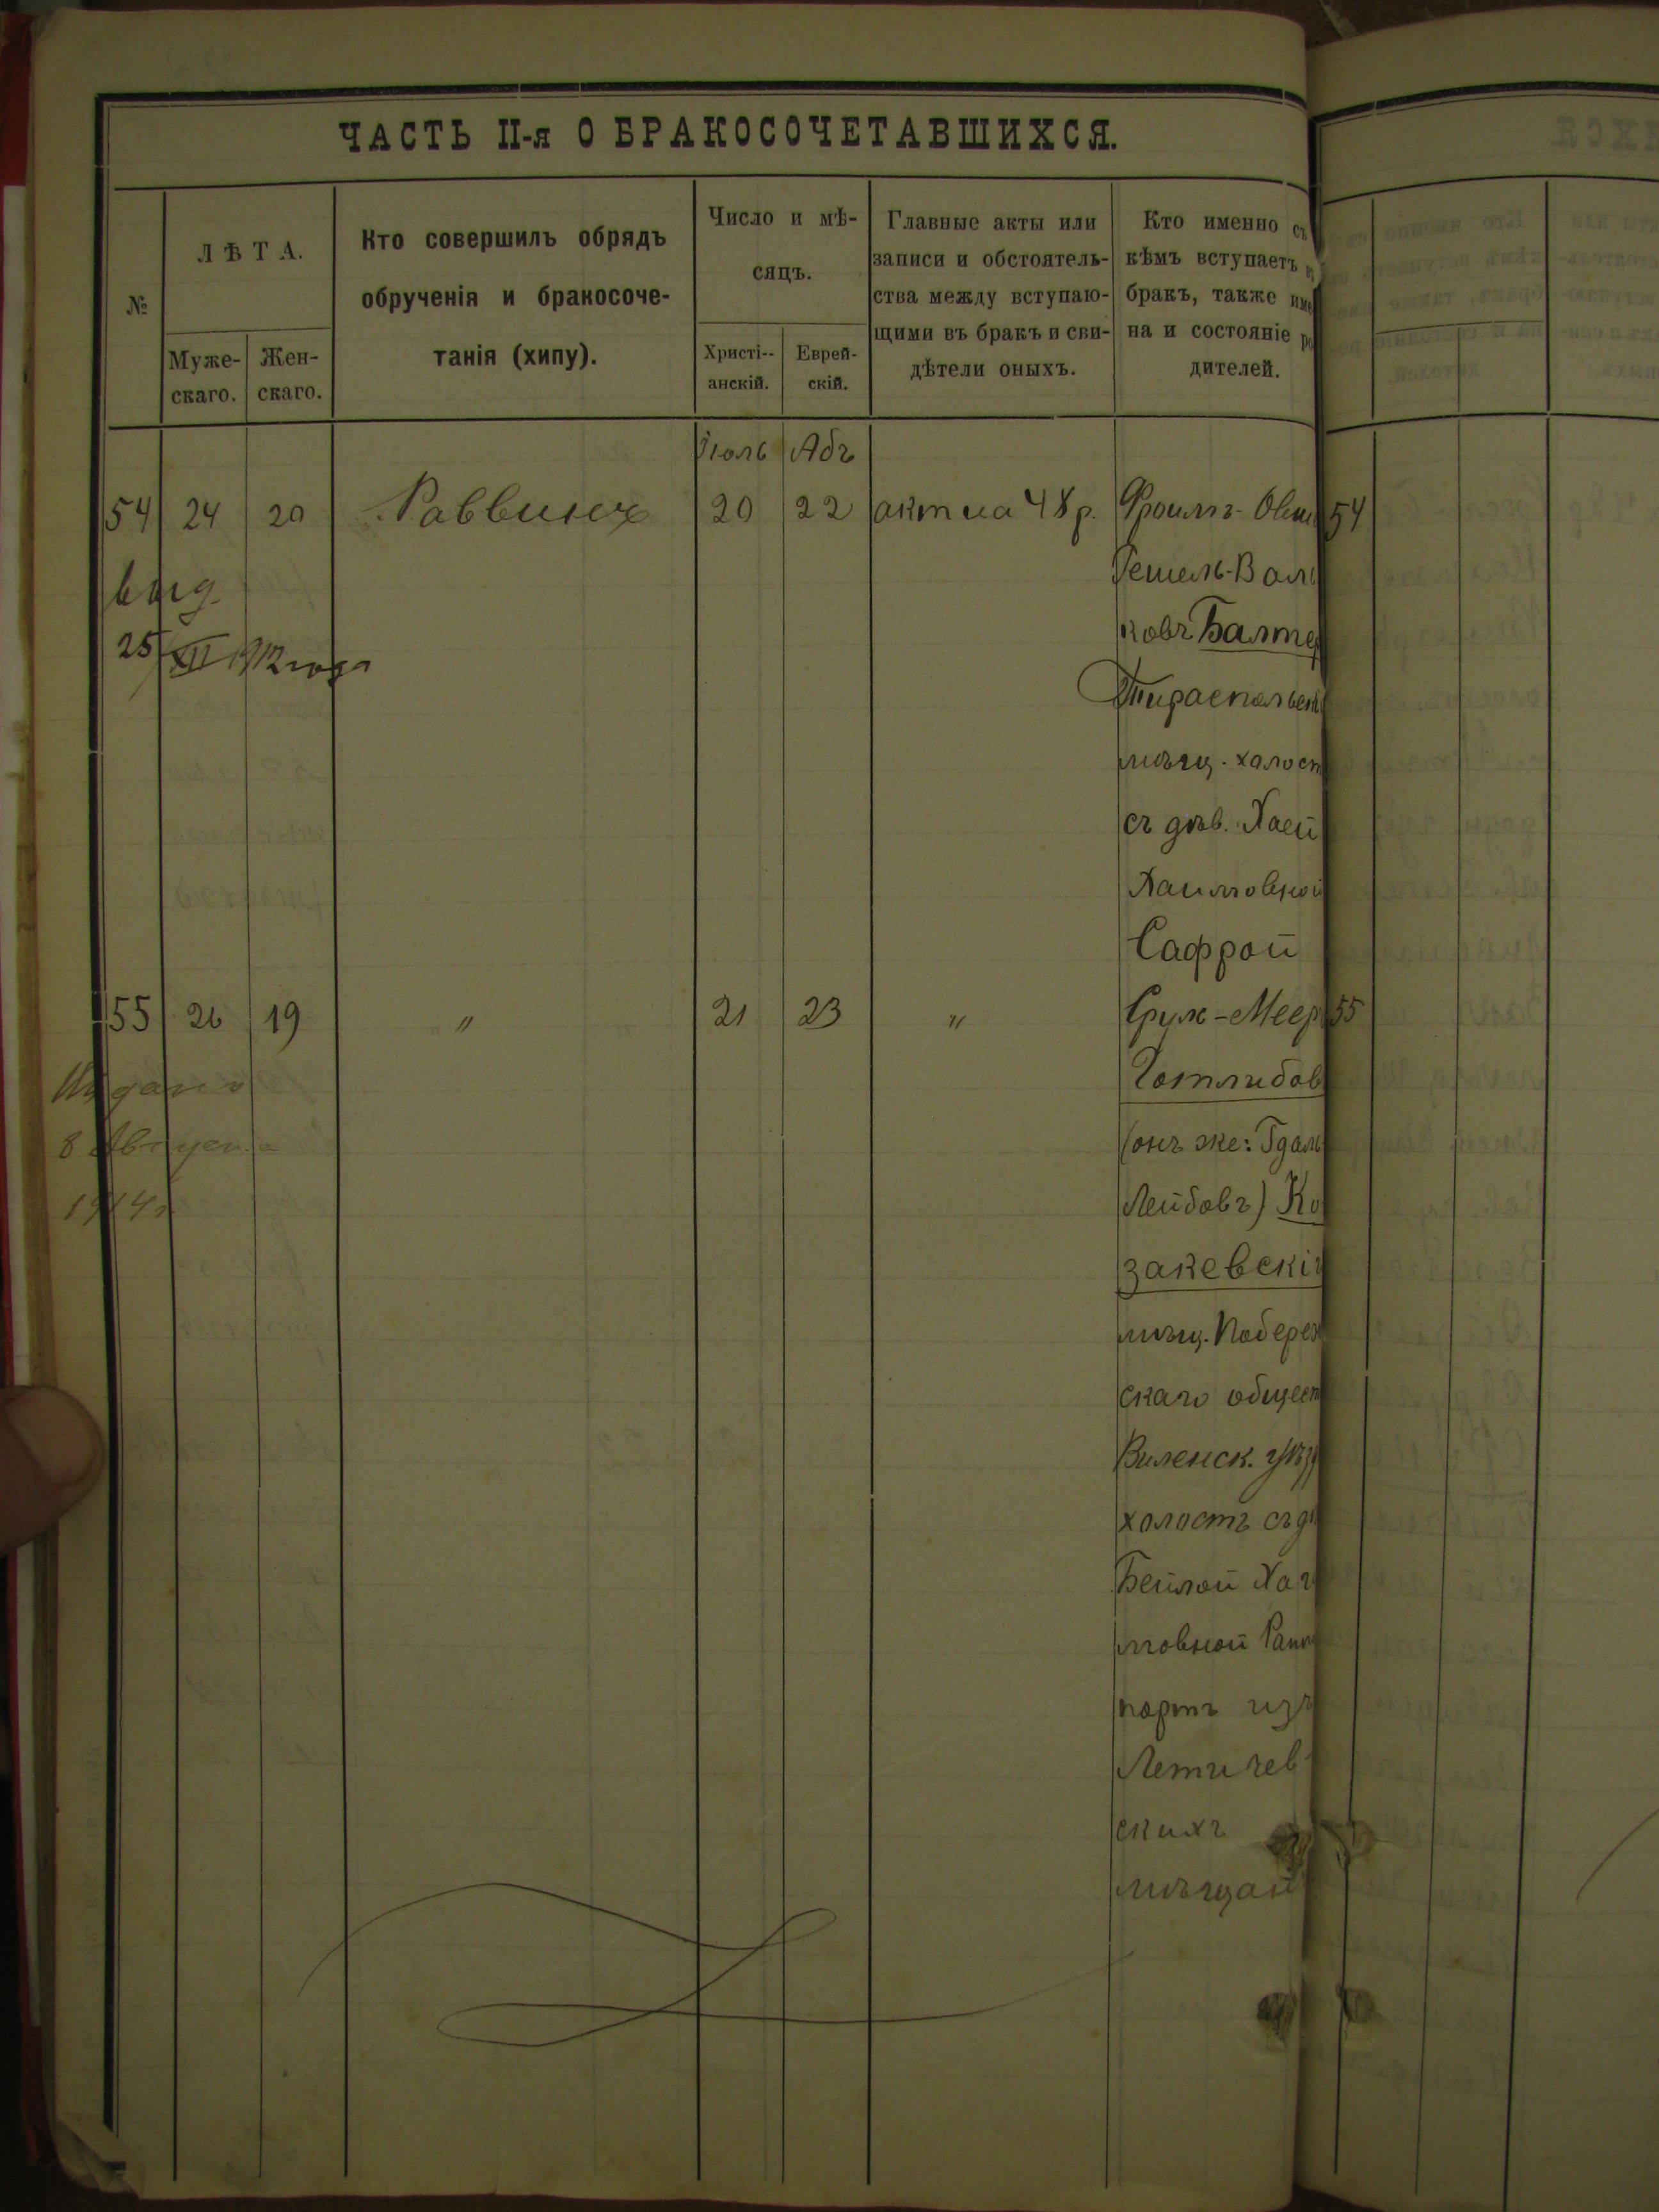 ЧАСТЬ II-я О БРАКОСОЧЕТАВШИХСЯ.
№
ЛѢТА.
Муже-
скаго.
Жен-
скаго.
Кто совершилъ обрядъ
обрученія и бракосоче-
танія (хипу).
Число и мѣ-
сяцъ.
Христі--
анскій.
Еврей-
скій.
Главные акты или
записи и обстоятель-
ства между вступаю-
щими въ бракъ и сви-
дѣтели оныхъ.
Кто именно съ
кѣмъ вступаетъ въ
бракъ, также име
на и состояніе ро
дителей.
Іюль Абъ
54 24 20 Раввинъ 20 22 акт на 48 р. Фроимъ-
Гешель-Воль
ковъ Балтер
Тираспольск
мѣщ. холост
съ дѣв. Хаей
Хаимовной
Сафрой
выд.
25/XII 1912 года
55 26 19 " 21 23 " Срул-Меер
Готлибов
(онъ же: Гдаль
Лейбовъ) Ко
закевскій
мѣщ. Побереж
скаго общест
Виленск. уѣзд
холостъ съ дѣ
Бейлой Хаи
мовной Рапо
портъ изъ
Летичев-
скихъ
мѣщан
Выдано
8 Августа
1914 г.
54
55